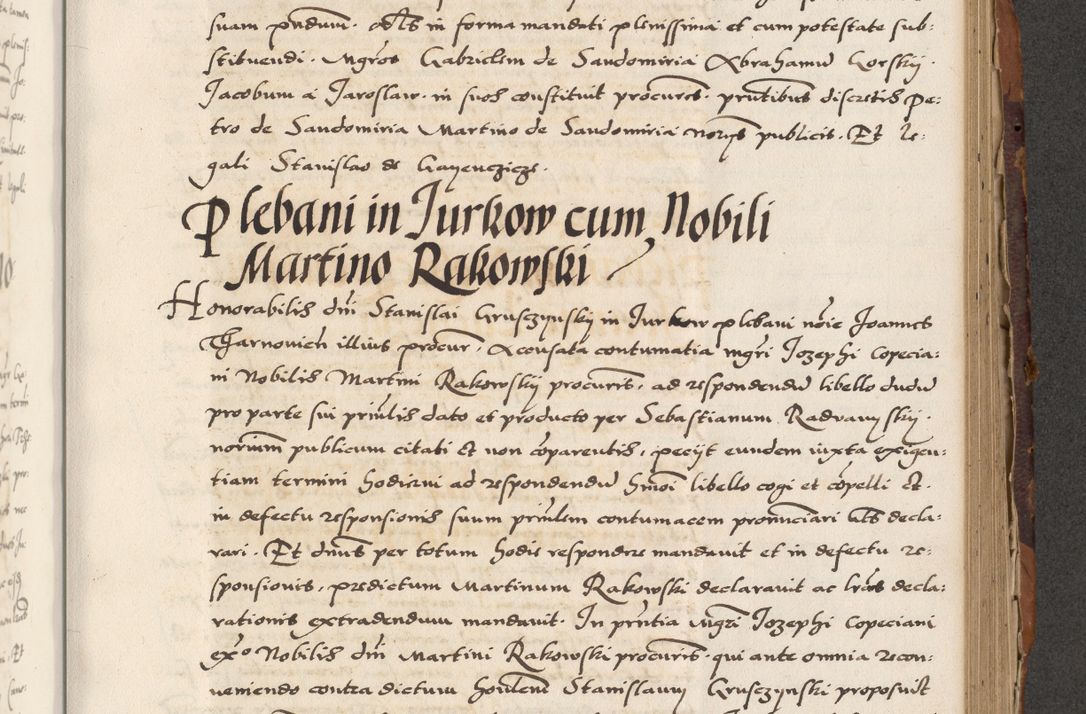 suam pnduvi. ods in forma mandati plenissima et cum potestate sub:
stituendi. Mgros Gabrielem de Sandomiria Abrahamu Gorskij.
Jacobum a Jaroslaw. in suos constituit procures. pntibus discretis Pe:
tro de Sandomiria Martino de Sandomiria norys publicis. Et le:
gali Stanislao de
Plebani in Jurkow cum Nobili
Martino Rakowski
Honorabilis dni Stanislai Grusczynskij in Jurkow plebani noie Joannes
Tharnovien illius procur. Acousata contumatia mgri Jozephi Copecia:
ni Nobilis Martini Rakowskij procuris. ad respondendu libello dudu
pro parte sui prinlis dato et producto per Sebastianum Radvanskij.
norium publicum citati et non coparentis, pecijt eundem iuxta exigen:
tiam termini hodierni ad respondendu hmoi libello cogi et copelli et.
in defectu responsionis suum prinlem contumacem pronunciari lras decla:
rari. Et dnus per totum hodie respondere mandavit et in defectu re:
sponsionis, predictum Martinum Rakowski declaravit ac lras decla:
rationis extradendum mandavit. In pntia Mgri Jozephi Copeciani
exo Nobilis dni Martini Rakowski procuris. qui ante omnia recon:
veniendo contra dictum honlem Stanislaum Grusczynski proposuit